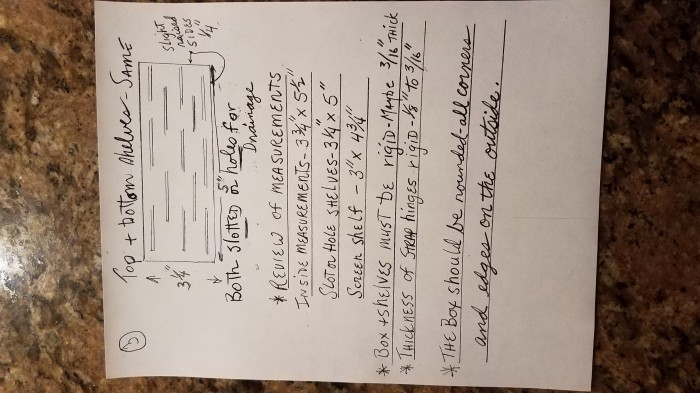 3
Top + bottom shelves - SAME
slight
raised
SIDES
1/4"
3 1/4"
5"
Both slotted or holes for
Drainage
* REVIEW OF MEASUREMENTS
INSIDE MEASUREMENTS - 3 3/4" x 5 1/2"
SLOT OR HOLE SHELVES - 3 1/4" x 5"
Screen shelf - 3" x 4 3/4"
* Box + shelves must be rigid - Maybe 3/16" THICK
* THICKNESS OF STRAP hinges rigid - 1/8" to 3/16"
* THE BOX should be rounded - all corners
and edges on the outside.